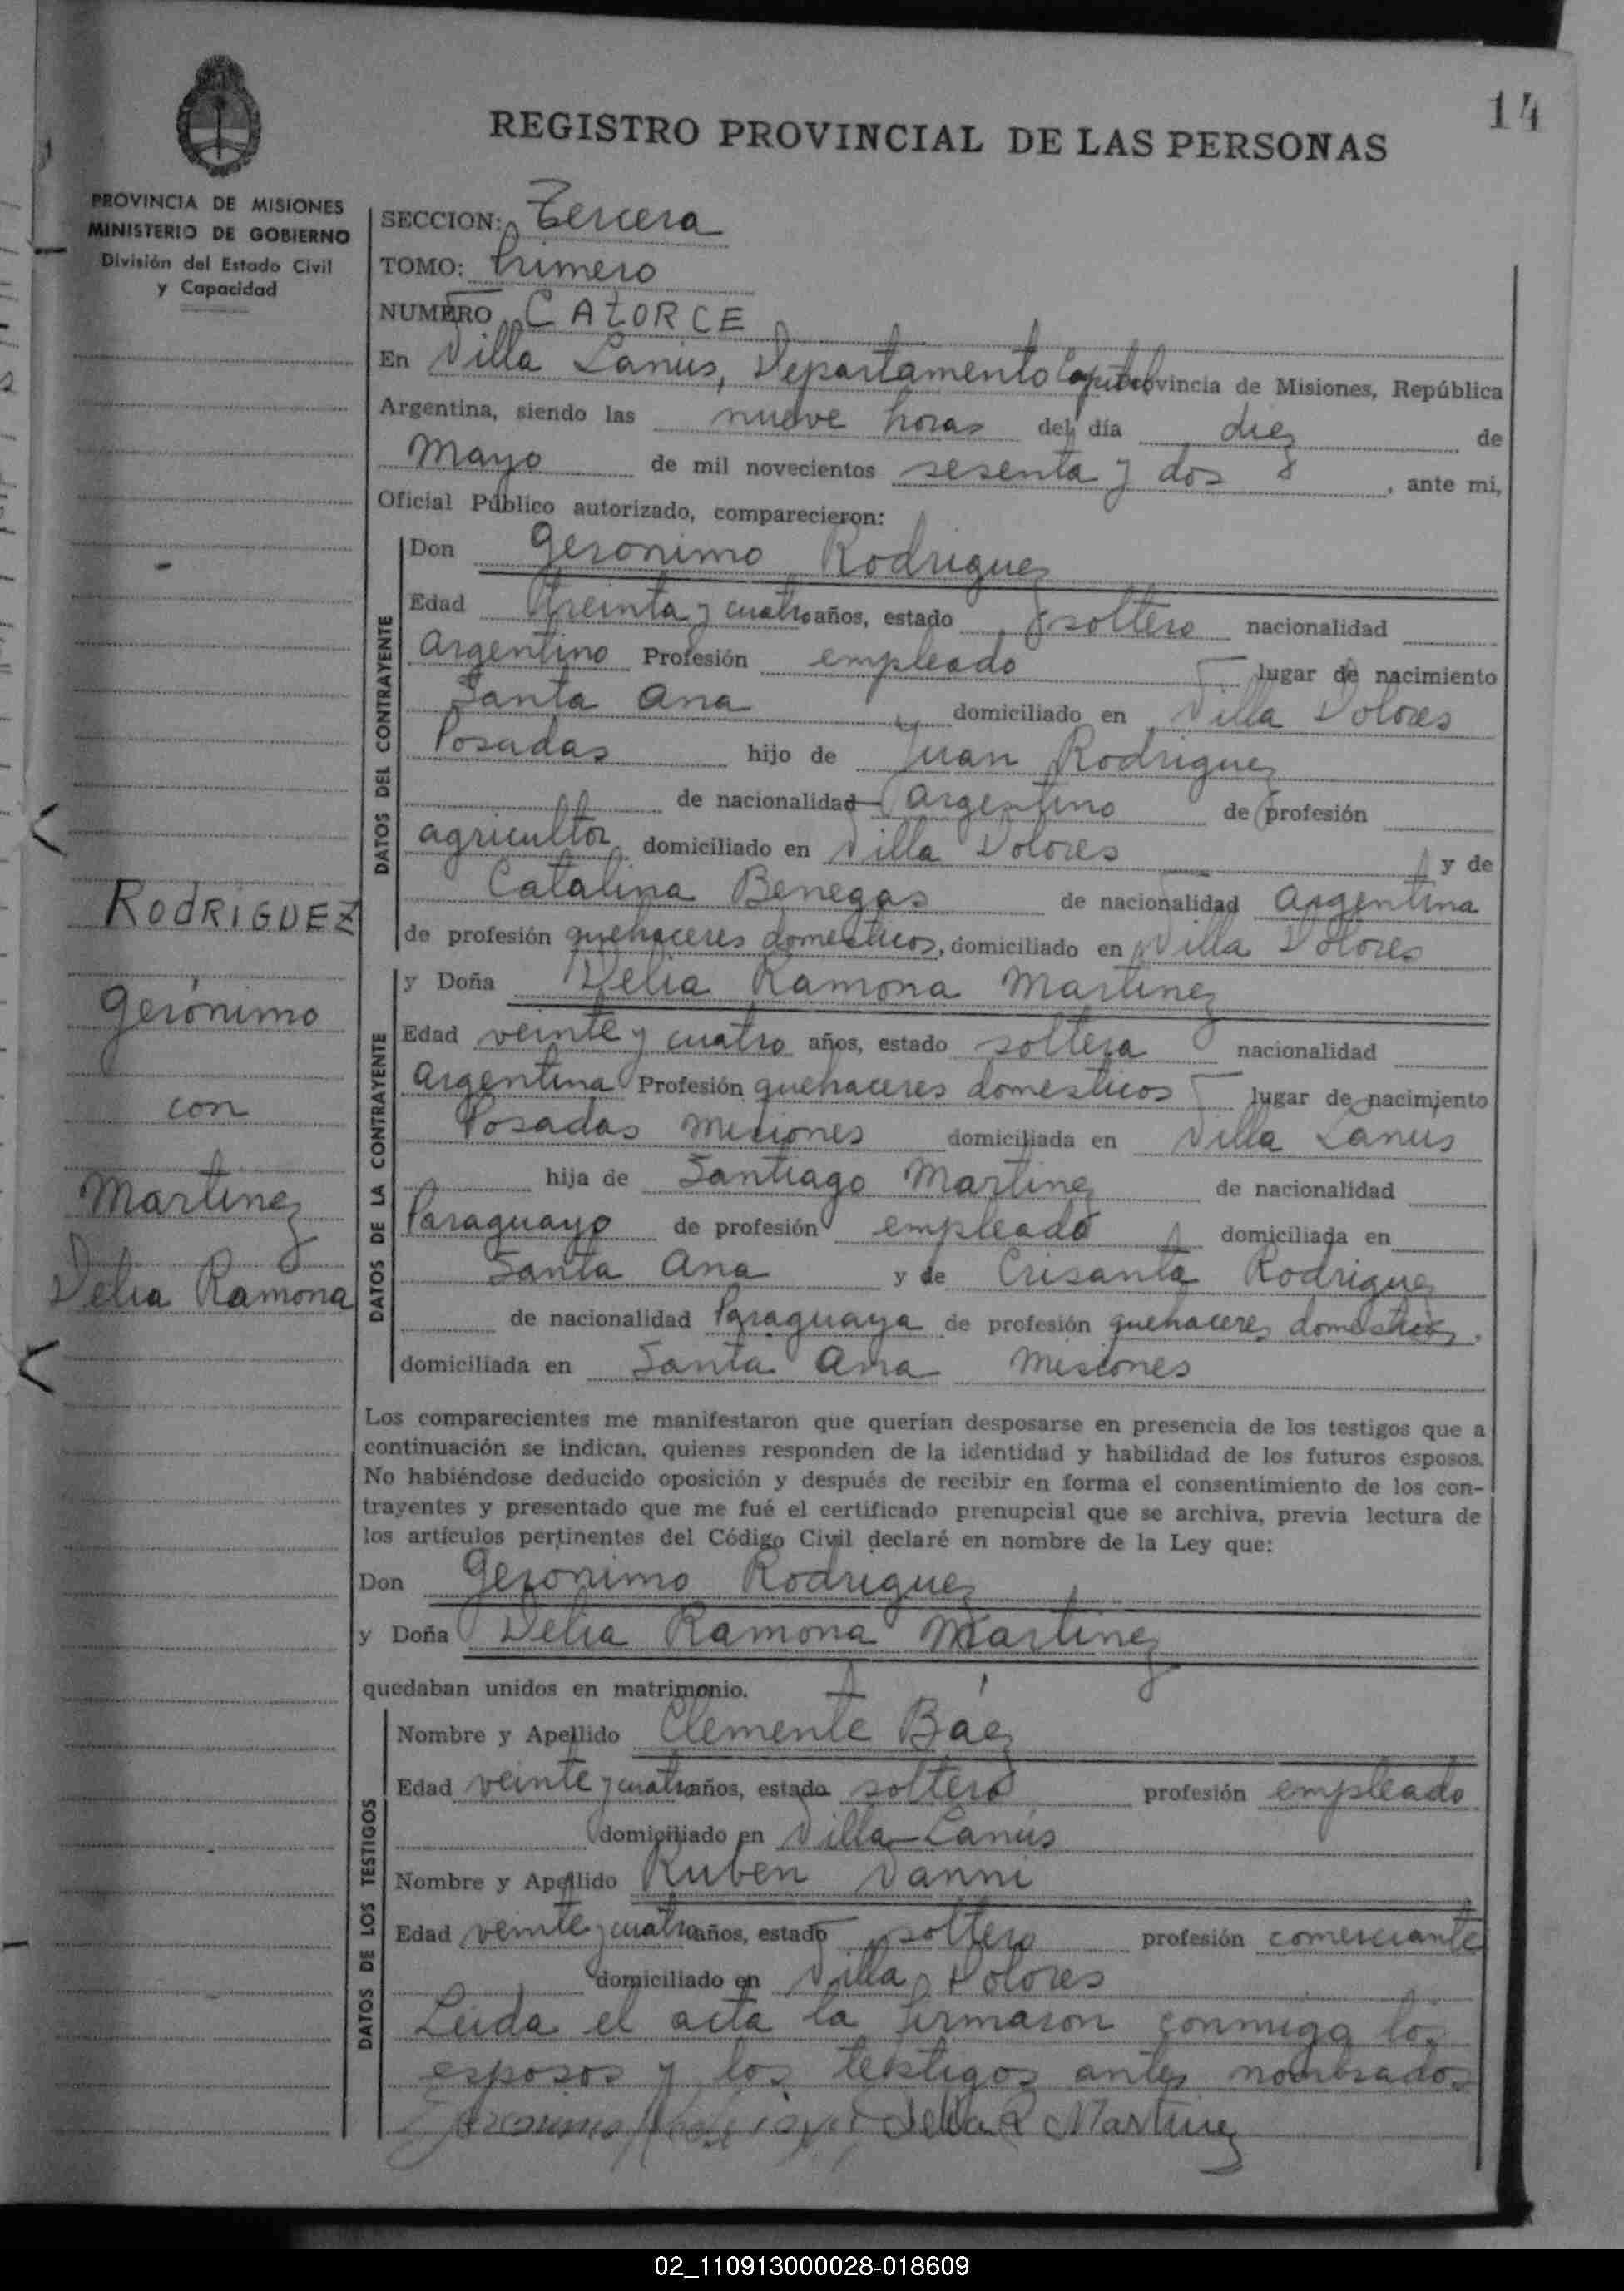 14
REGISTRO PROVINCIAL DE LAS PERSONAS
PROVINCIA DE MISIONES
MINISTERIO DE GOBIERNO
División del Estado Civil
y Capacidad
SECCION: Tercera
TOMO: Primero
NUMERO CATORCE
En Villa Lanús, Departamento Capital Provincia de Misiones, República
Argentina, siendo las nueve horas del día diez de
Mayo de mil novecientos sesenta y dos, ante mi,
Oficial Público autorizado, comparecieron:
DATOS DEL CONTRAYENTE
Don Geronimo Rodriguez
Edad treinta y cuatro años, estado soltero nacionalidad
Argentino Profesión empleado lugar de nacimiento
Santa Ana domiciliado en Villa Dolores
Posadas hijo de Juan Rodriguez
de nacionalidad Argentino de profesión
agricultor domiciliado en Villa Dolores y de
Catalina Benegas de nacionalidad Argentina
de profesión quehaceres domesticos, domiciliado en Villa Dolores
RODRIGUEZ
Gerónimo
con
Martinez
Delia Ramona
DATOS DE LA CONTRAYENTE
y Doña Delia Ramona Martinez
Edad veinte y cuatro años, estado soltera nacionalidad
Argentina Profesión quehaceres domesticos lugar de nacimiento
Posadas Misiones domiciliada en Villa Lanus
hija de Santiago Martinez de nacionalidad
Paraguayo de profesión empleado domiciliada en
Santa Ana y de Crisanta Rodriguez
de nacionalidad Paraguaya de profesión quehaceres domesticos.
domiciliada en Santa Ana Misiones
Los comparecientes me manifestaron que querían desposarse en presencia de los testigos que a
continuación se indican, quienes responden de la identidad y habilidad de los futuros esposos.
No habiéndose deducido oposición y después de recibir en forma el consentimiento de los con-
trayentes y presentado que me fué el certificado prenupcial que se archiva, previa lectura de
los artículos pertinentes del Código Civil declaré en nombre de la Ley que:
Don Geronimo Rodriguez
y Doña Delia Ramona Martinez
quedaban unidos en matrimonio.
DATOS DE LOS TESTIGOS
Nombre y Apellido Clemente Báez
Edad veinte y cuatro años, estado soltero profesión empleado
domiciliado en Villa Lanús
Nombre y Apellido Ruben Vanni
Edad veinte y cuatro años, estado soltero profesión comerciante
domiciliado en Villa Dolores
Leida el acta la firmaron conmigo los
esposos y los testigos antes nombrados
Delia R Martinez
02_110913000028-018609